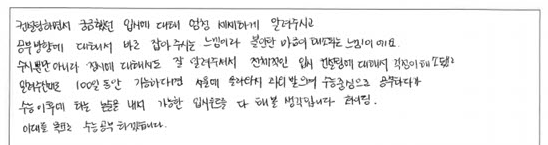 컨설팅하면서 궁금했던 입시에 대해 엄청 세세하게 알려주시고
공부방향에 대해서 바로 잡아주시는 느낌이라 불안한 마음이 해소되는 느낌이에요.
수시뿐만 아니라 정시에 대해서도 잘 알려주셔서 전체적인 입시 컨설팅에 대해서 걱정이 해소됐고
알려주신대로 100일 동안 가능하다면 서울에 올라다시 관리 받으며 수능중심으로 공부하다가
수능 이후에 하는 논술을 내서 가능한 입시운을 다 해볼 생각입니다 화이팅.
이대를 목표로 수능공부 하겠습니다.